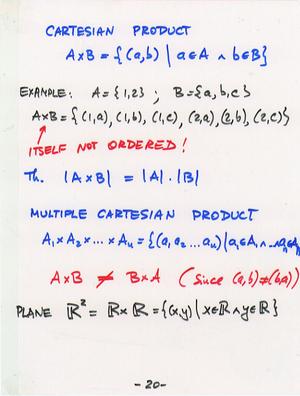 CARTESIAN PRODUCT
A×B = {(a,b) | a∈A ∧ b∈B}
EXAMPLE: A = {1,2} ; B = {a,b,c}
A×B = {(1,a), (1,b), (1,c), (2,a), (2,b), (2,c)}
ITSELF NOT ORDERED!
Th. |A×B| = |A|·|B|
MULTIPLE CARTESIAN PRODUCT
A₁×A₂×...×Aₙ = {(a₁,a₂...aₙ) | a₁∈A₁ ∧...∧ aₙ∈Aₙ}
A×B ≠ B×A (since (a,b)≠(b,a))
PLANE ℝ² = ℝ×ℝ = {(x,y) | x∈ℝ ∧ y∈ℝ}
-20-